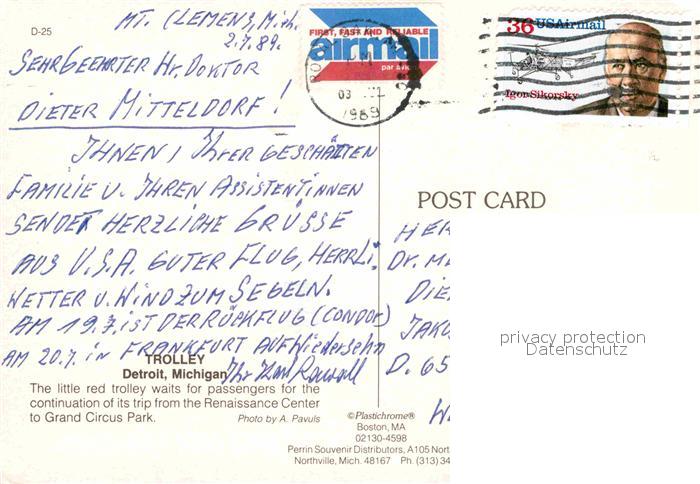 D-25
MT. CLEMENS, Mich.
2.7.89.
SEHR GEEHRTER Hr. DOKTOR
DIETER MITTELDORF!
IHNEN, IHRER GESCHÄTTEN
FAMILIE U. IHREN ASSISTENTINNEN
SENDET HERZLICHE GRÜSSE
AUS U.S.A. GUTER FLUG, HERRLI.
WETTER U. WIND ZUM SEGELN.
AM 19.7. IST DER RÜCKFLUG (CONDOR)
AM 20.7. in FRANKFURT AUF Wiedersehn
Ihr Karl
TROLLEY
Detroit, Michigan
The little red trolley waits for passengers for the
continuation of its trip from the Renaissance Center
to Grand Circus Park.
Photo by A. Pavuls
FIRST, FAST AND RELIABLE
airmail
par avion
03
1989
36 USAirmail
Igor Sikorsky
POST CARD
HER
DR. ME
DIE
JAKO
D. 65
W
privacy protection
Datenschutz
©Plastichrome®
Boston, MA
02130-4598
Perrin Souvenir Distributors, A105 Nort
Northville, Mich. 48167 Ph. (313) 34